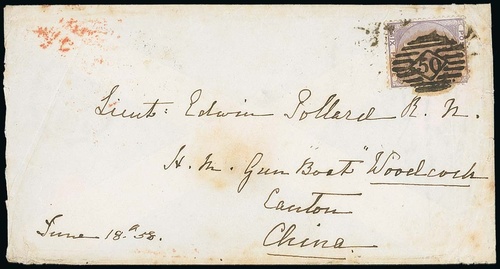 50
Lieut: Edwin Pollard R. N.
H. M. Gun "Boat" Woodcock
Canton
China
June 18. 58.